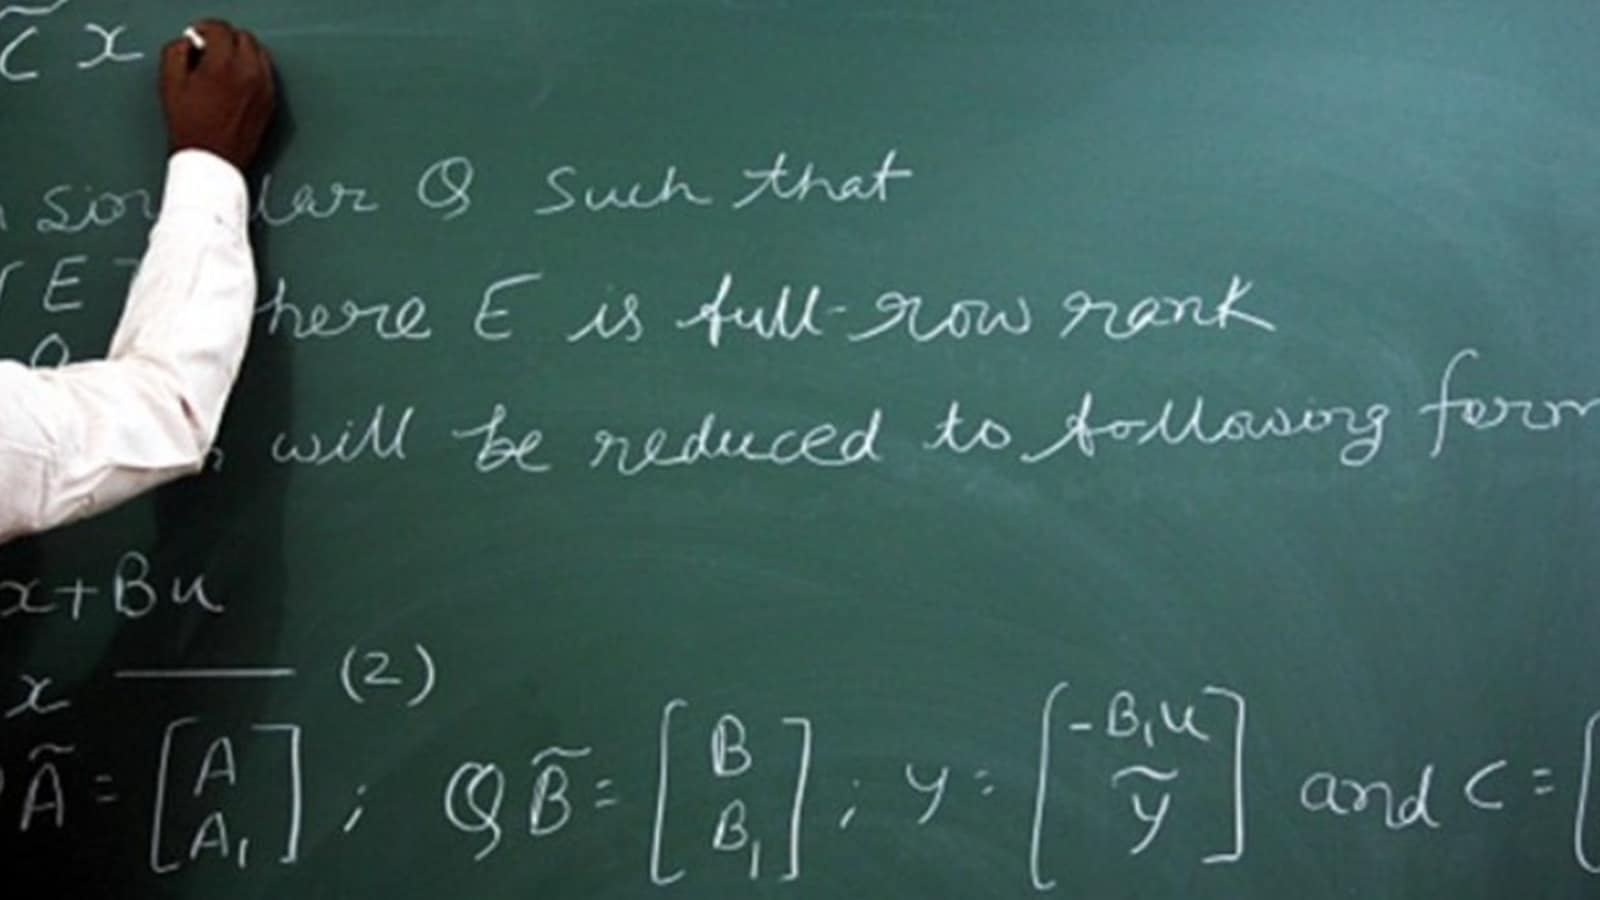 C̃ x
lar Q such that
E here E is full-row rank
0
will be reduced to following form
x+Bu
x ——— (2)
Ã = [A A₁] ; Q B̃ = [B B₁] ; y = [-B₁u ỹ] and C = [